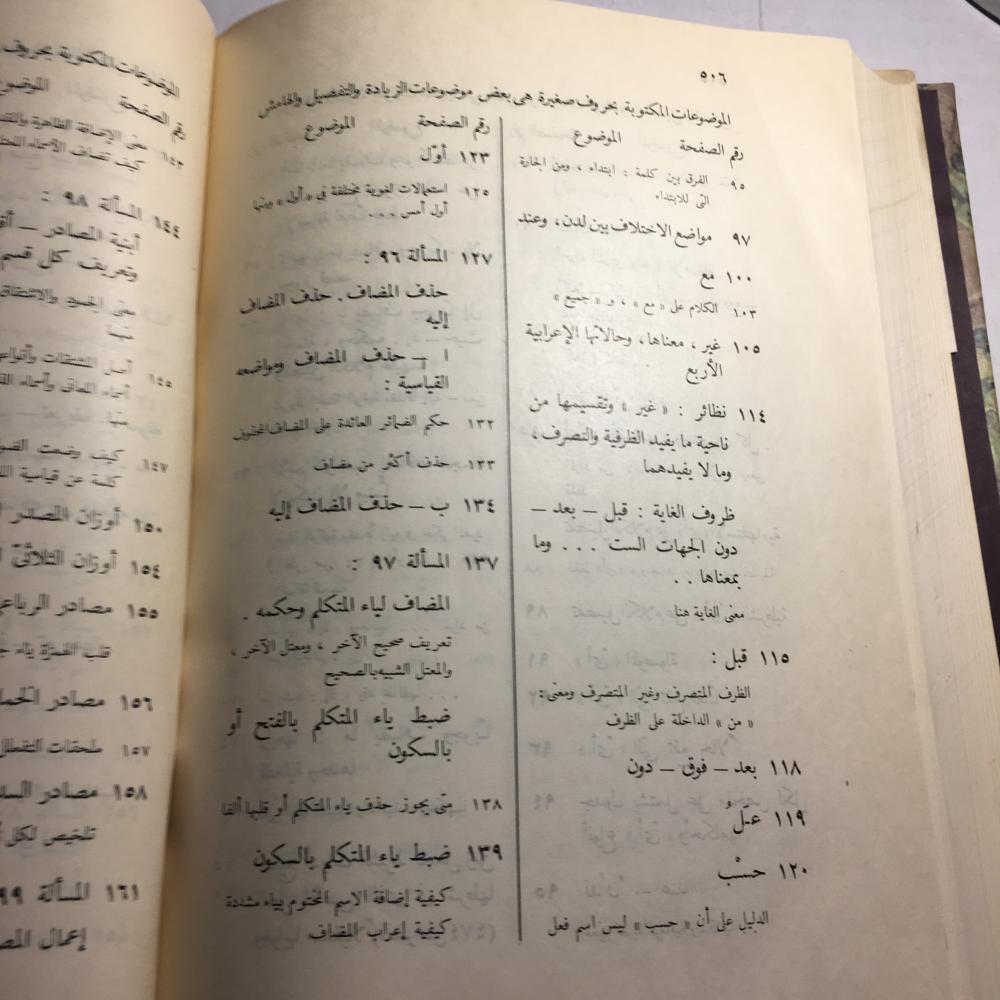 ٥٠٦
الموضوعات المكتوبة بحروف صغيرة هى بعض موضوعات الزيادة والتفصيل والهامش
رقم الصفحة الموضوع
٩٥ الفرق بين كلمة : ابتداء ، ومن الجارة
التى للابتداء
٩٧ مواضع الاختلاف بين لدن، وعند
١٠٠ مع
١٠٣ الكلام على « مع » ، و « جميع »
١٠٥ غير ، معناها، وحالاتها الإعرابية
الأربع
١١٤ نظائر : « غير » وتقسيمها من
ناحية ما يفيد الظرفية والتصرف ،
وما لا يفيدهما
ظروف الغاية : قبل – بعد –
دون الجهات الست . . . وما
بمعناها . .
معنى الغاية هنا
١١٥ قبل :
الظرف المتصرف وغير المتصرف ومعنى:
« من » الداخلة على الظرف
١١٨ بعد – فوق – دون
١١٩ عَلُ
١٢٠ حسْب
الدليل على أن « حسب » ليس اسم فعل
رقم الصفحة الموضوع
١٢٣ أوّل
١٢٥ استعمالات لغوية مختلفة فى « أول » ومنها
أول أمس . . .
١٢٧ المسألة ٩٦ :
حذف المضاف . حذف المضاف
إليه
ا – حذف المضاف ومواضعه
القياسية :
١٣٢ حكم الضمائر العائدة على المضاف المحذوف
١٣٣ حذف أكثر من مضاف
١٣٤ ب – حذف المضاف إليه
١٣٧ المسألة ٩٧ :
المضاف لياء المتكلم وحكمه .
تعريف صحيح الآخر ، ومعتل الآخر ،
والمعتل الشبيه بالصحيح
ضبط ياء المتكلم بالفتح أو
بالسكون
١٣٨ متى يجوز حذف ياء المتكلم أو قلبها ألفا
١٣٩ ضبط ياء المتكلم بالسكون
كيفية إضافة الاسم المختوم بياء مشددة
كيفية إعراب المضاف
الموضوعات المكتوبة بحروف
رقم الصفحة الموضوع
١٤٣ معنى الإضافة الظاهرة
كيف تضاف الأسماء
١٤٤ المسألة ٩٨ :
أبنية المصادر –
وتعريف كل قسم
معنى الجمع والاشتقاق
١٤٥ أصل المشتقات وأنواع
أسماء المعانى وأسماء
١٤٧ كيف وضعت
كلمة عن قياسية
١٥٠ أوزان المصدر
١٥٤ أوزان الثلاثىّ
١٥٥ مصادر الرباعى
قلب الهمزة ياء
١٥٦ مصادر
١٥٧ ملحقات
١٥٨ مصادر
تلخيص لكل
١٦١ المسألة ٩٩
إعمال